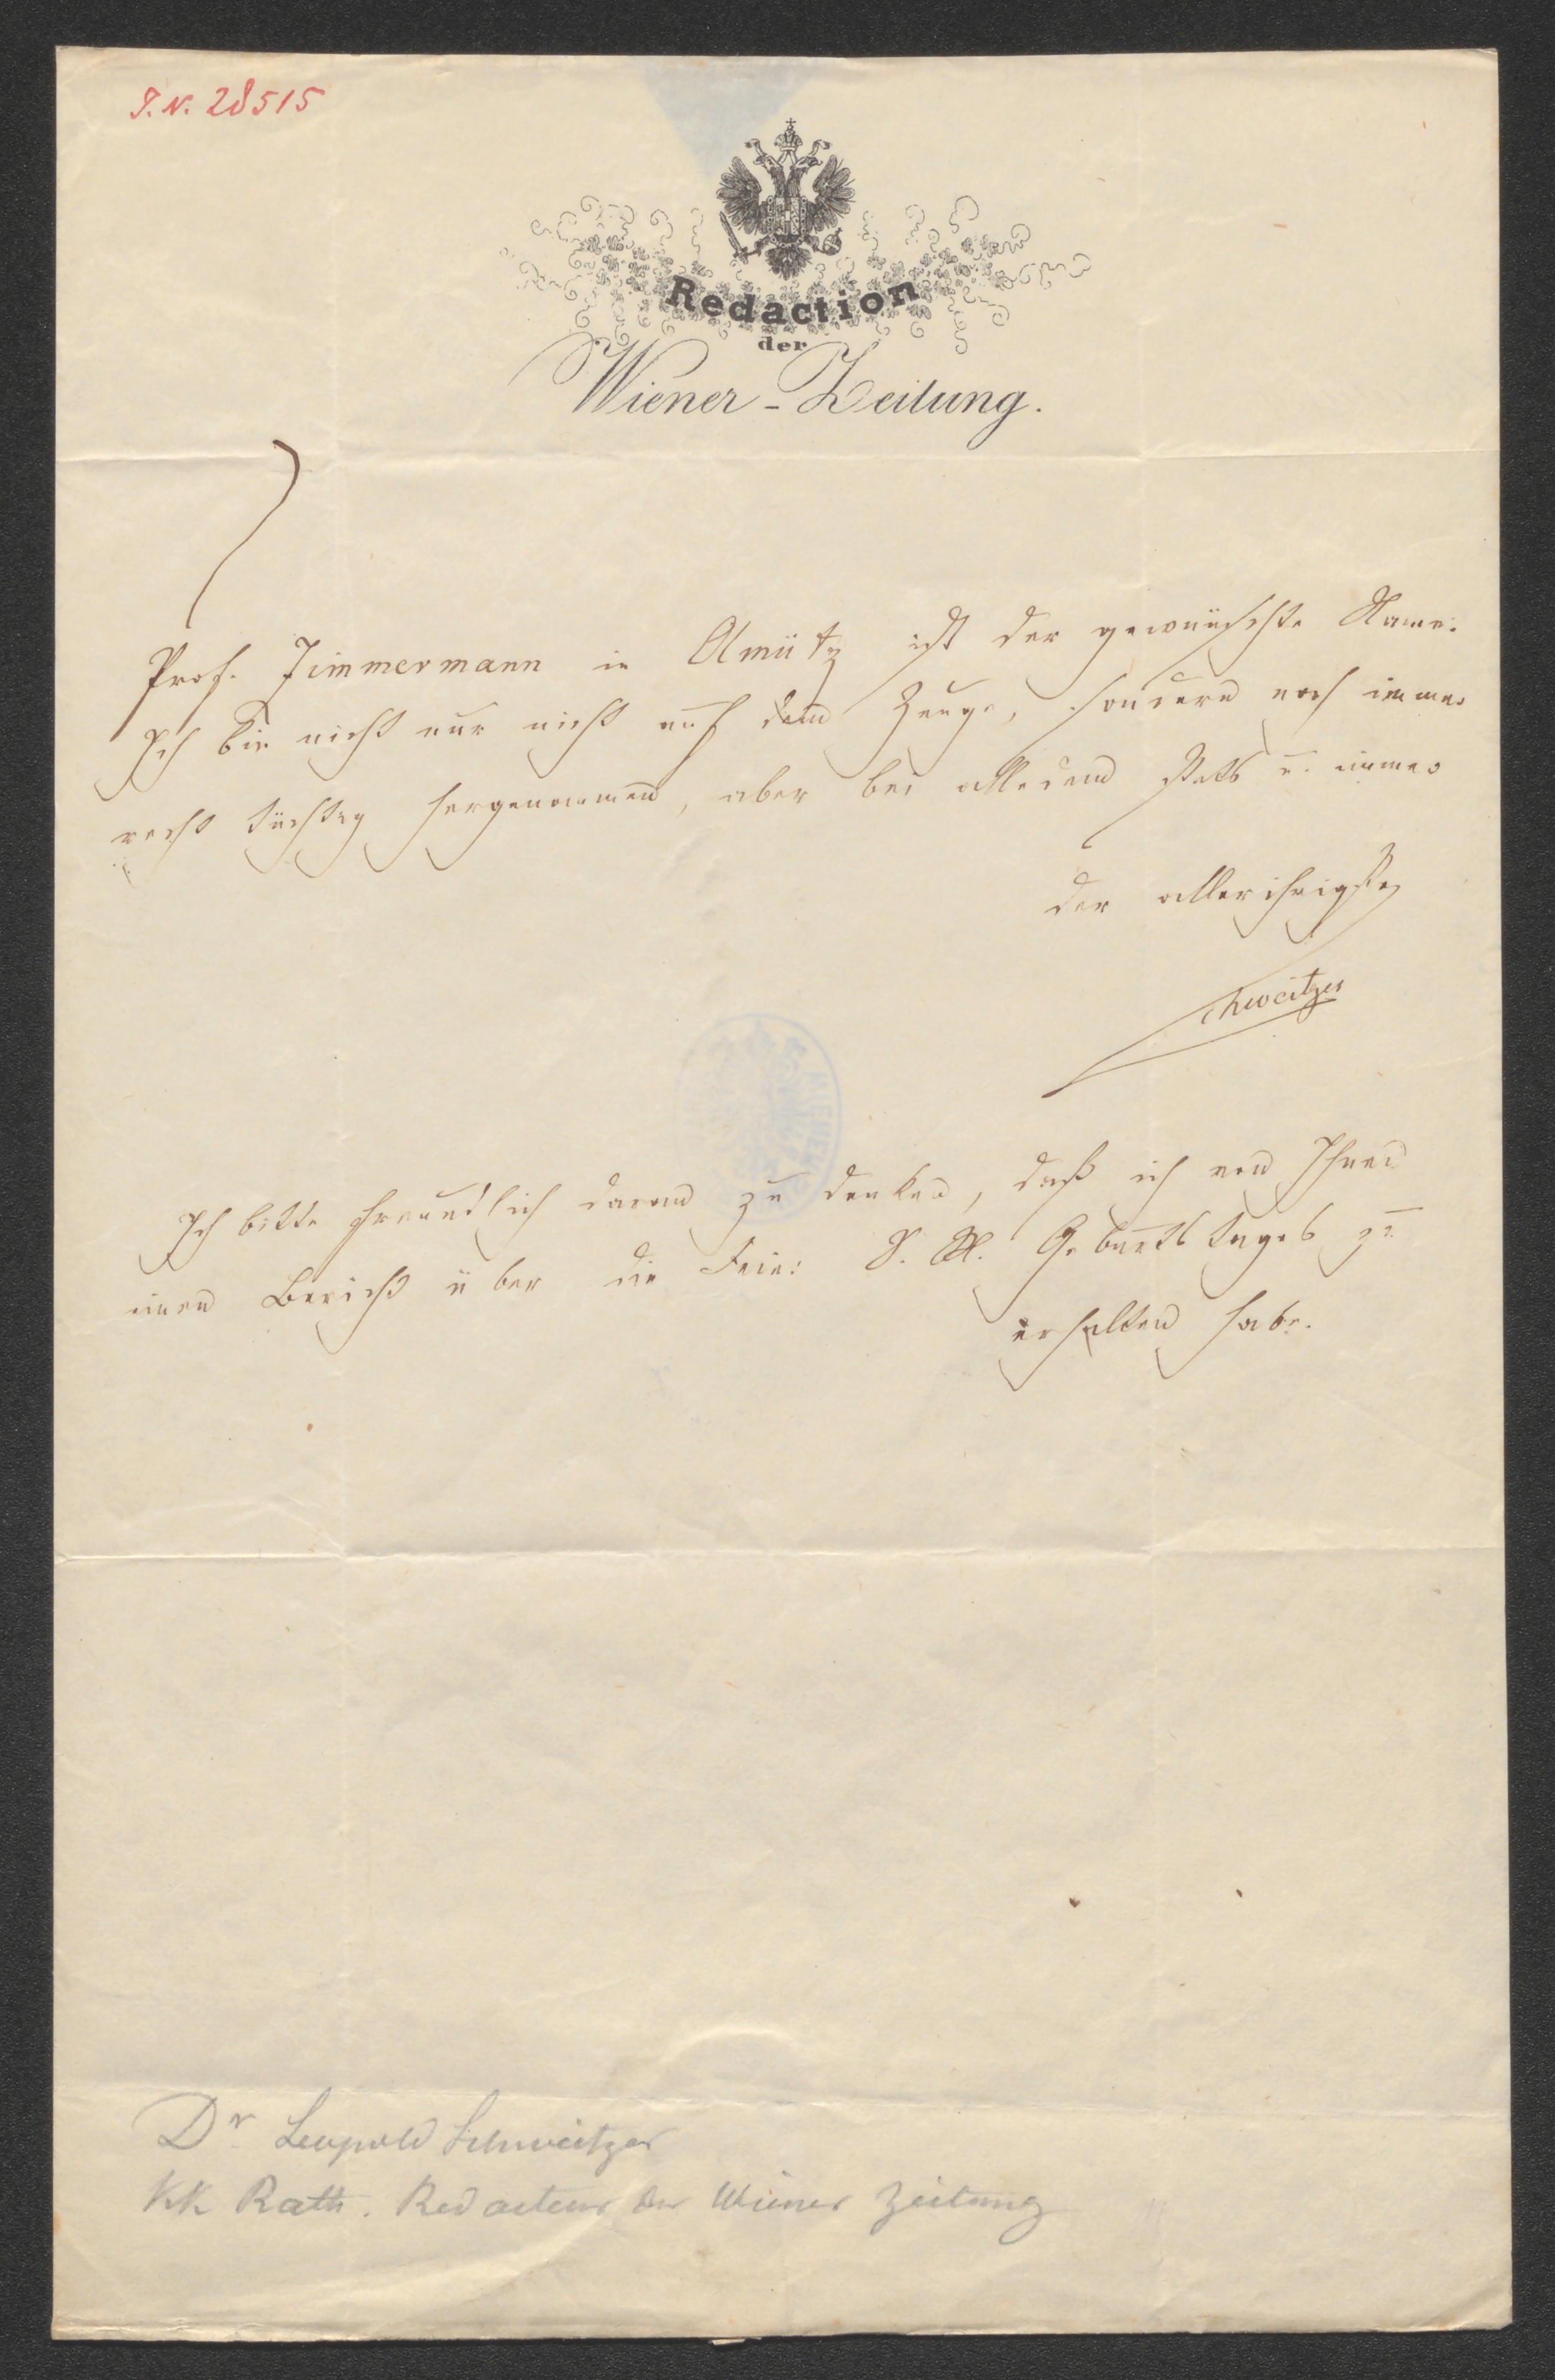 I. N. 28515
Redaction
der
Wiener-Zeitung.
Prof. Zimmermann in Olmütz ist der gewünschte Name.
Ich bin nicht nur nicht auf dem Zeuge, sondern noch immer
recht tüchtig hergenommen, aber bei alledem stets u. immer
der allerihrigste
Schweitzer
Ich bitte freundlich daran zu denken, daß ich von Ihnen
einen Bericht über die Feier S. M. Geburtstages zu
erhalten habe.
Dr Leopold Schweitzer
KK Rath. Redacteur der Wiener Zeitung